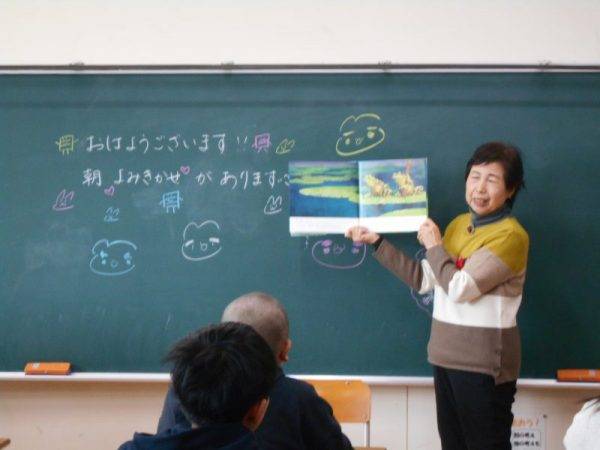 おはようございます!!
朝 よみきかせ が あります